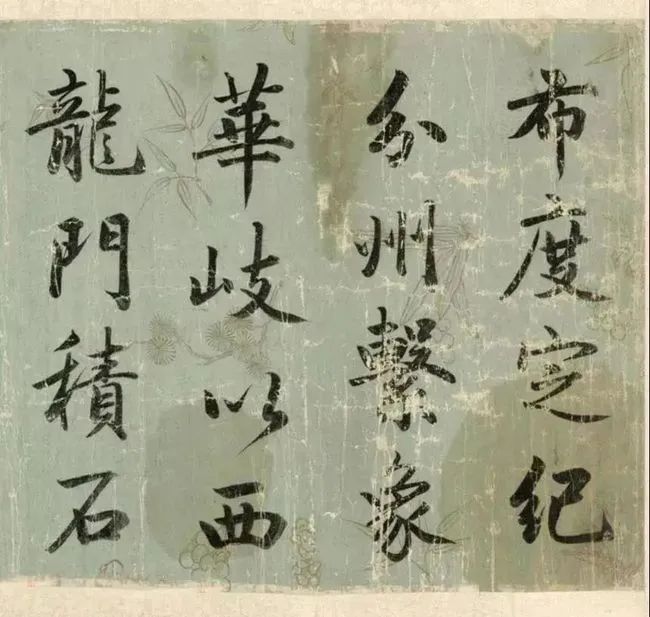 布度定紀
分州繫象
華岐以西
龍門積石